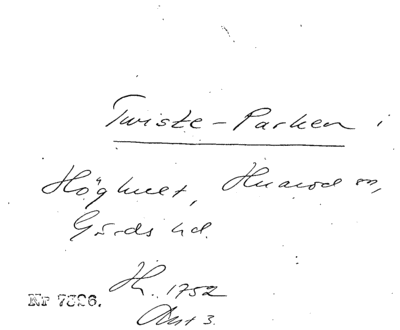 Twiste-Parken i
Höghult, Hnarod sn,
Gärds hd.
Hh. 1752
Akt 3.
Nr 7326.